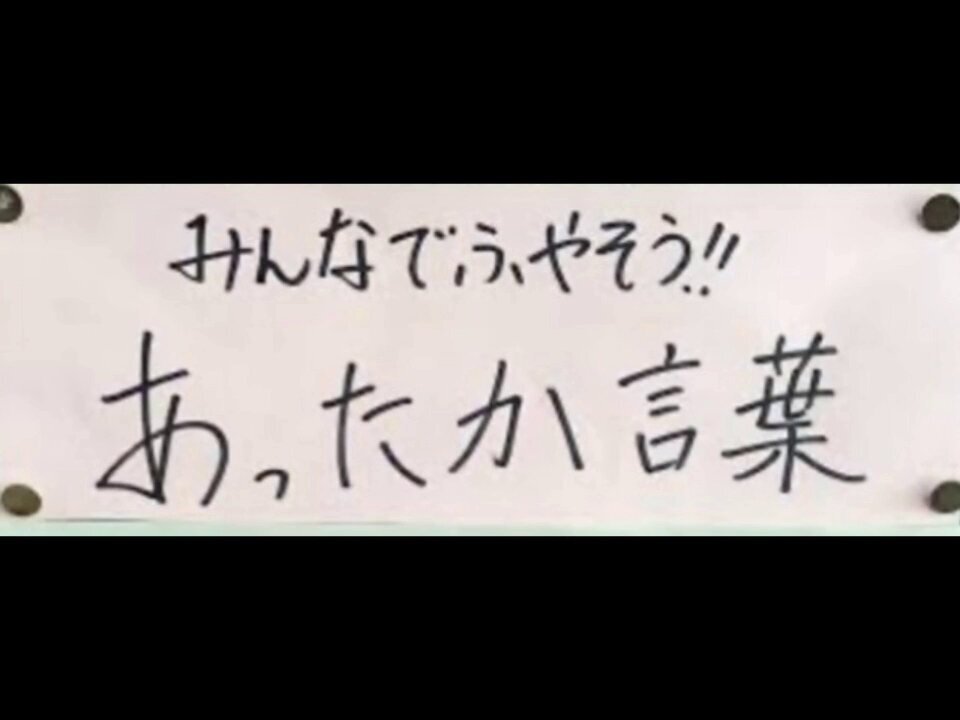 みんなでふやそう!!
あったか言葉